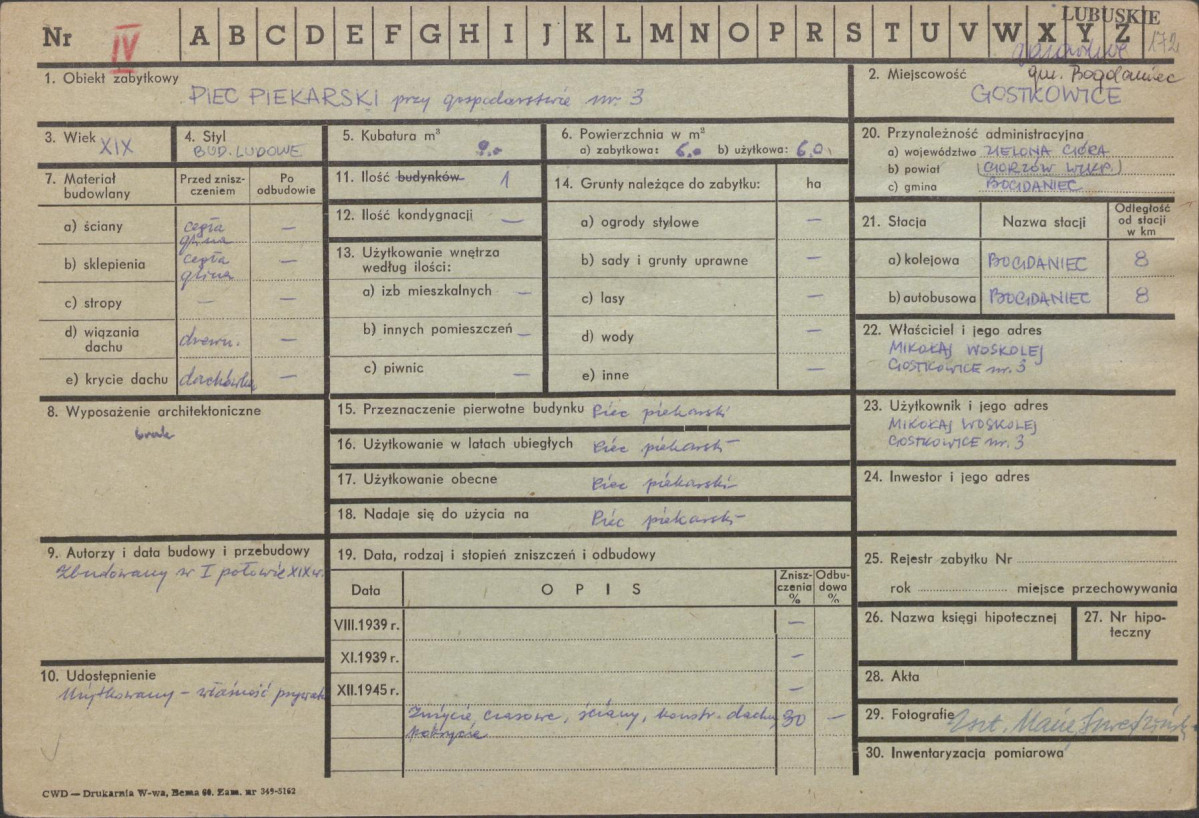 Nr IV A B C D E F G H I J K L M N O P R S T U V W X Y Z
LUBUSKIE
172
gm. Bogdaniec
1. Obiekt zabytkowy
PIEC PIEKARSKI przy gospodarstwie nr. 3
2. Miejscowość
GOSTKOWICE
3. Wiek XIX
4. Styl
BUD. LUDOWE
5. Kubatura m³
9.0
6. Powierzchnia w m²
a) zabytkowa: 6.0 b) użytkowa: 6.0.
7. Materiał budowlany
Przed zniszczeniem
Po odbudowie
a) ściany cegła glina —
b) sklepienia cegła glina —
c) stropy — —
d) wiązania dachu drewn. —
e) krycie dachu dachówka —
8. Wyposażenie architektoniczne
brak
9. Autorzy i data budowy i przebudowy
Zbudowany w I połowie XIX w.
10. Udostępnienie
Użytkowany — własność prywat
11. Ilość budynków 1
12. Ilość kondygnacji —
13. Użytkowanie wnętrza
według ilości:
a) izb mieszkalnych —
b) innych pomieszczeń —
c) piwnic —
14. Grunty należące do zabytku: ha
a) ogrody stylowe —
b) sady i grunty uprawne —
c) lasy —
d) wody —
e) inne —
15. Przeznaczenie pierwotne budynku Piec piekarski
16. Użytkowanie w latach ubiegłych Piec piekarski
17. Użytkowanie obecne Piec piekarski
18. Nadaje się do użycia na Piec piekarski
19. Data, rodzaj i stopień zniszczeń i odbudowy
Data
OPIS
Zniszczenia %
Odbudowa %
VIII.1939 r. —
XI.1939 r. —
XII.1945 r. —
Zużycie czasowe, ściany, konstr. dachu, 30 —
pokrycie
20. Przynależność administracyjna
a) województwo ZIELONA GÓRA
b) powiat (GORZÓW WLKP.)
c) gmina BOGDANIEC
21. Stacja
Nazwa stacji
Odległość od stacji w km
a) kolejowa BOGDANIEC 8
b) autobusowa BOGDANIEC 8
22. Właściciel i jego adres
MIKOŁAJ WOSKOLEJ
GOSTKOWICE nr. 3
23. Użytkownik i jego adres
MIKOŁAJ WOSKOLEJ
GOSTKOWICE nr. 3
24. Inwestor i jego adres
25. Rejestr zabytku Nr
rok miejsce przechowywania
26. Nazwa księgi hipotecznej
27. Nr hipoteczny
28. Akta
29. Fotografie
30. Inwentaryzacja pomiarowa
CWD — Drukarnia W-wa, Bema 60. Zam. nr 349-5162